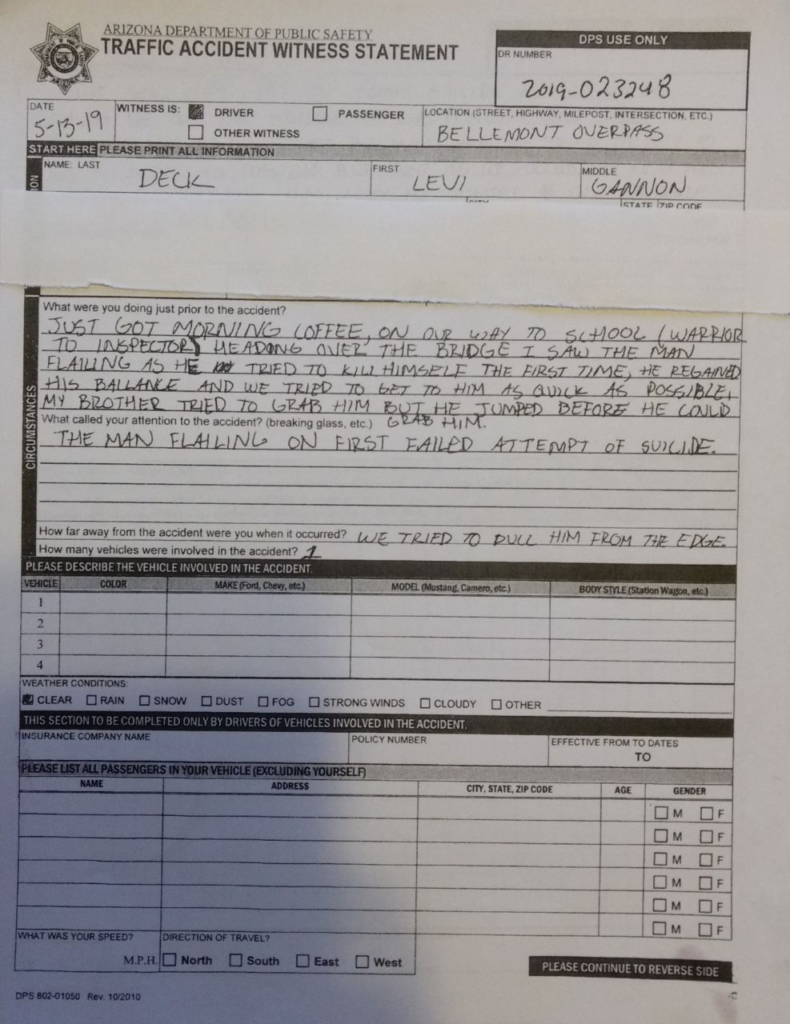 ARIZONA DEPARTMENT OF PUBLIC SAFETY
TRAFFIC ACCIDENT WITNESS STATEMENT
DPS USE ONLY
DR NUMBER
2019-023248
DATE
5-13-19
WITNESS IS: DRIVER PASSENGER
OTHER WITNESS
LOCATION (STREET, HIGHWAY, MILEPOST, INTERSECTION, ETC.)
BELLEMONT OVERPASS
START HERE PLEASE PRINT ALL INFORMATION
NAME: LAST FIRST MIDDLE
DECK LEVI GANNON
STATE ZIP CODE
CIRCUMSTANCES
What were you doing just prior to the accident?
JUST GOT MORNING COFFEE, ON OUR WAY TO SCHOOL (WARRIOR
TO INSPECTOR) HEADING OVER THE BRIDGE I SAW THE MAN
FLAILING AS HE TRIED TO KILL HIMSELF THE FIRST TIME, HE REGAINED
HIS BALLANCE AND WE TRIED TO GET TO HIM AS QUICK AS POSSIBLE,
MY BROTHER TRIED TO GRAB HIM BUT HE JUMPED BEFORE HE COULD
What called your attention to the accident? (breaking glass, etc.) GRAB HIM.
THE MAN FLAILING ON FIRST FAILED ATTEMPT OF SUICIDE.
How far away from the accident were you when it occurred? WE TRIED TO PULL HIM FROM THE EDGE.
How many vehicles were involved in the accident? 1
PLEASE DESCRIBE THE VEHICLE INVOLVED IN THE ACCIDENT.
VEHICLE COLOR MAKE (Ford, Chevy, etc.) MODEL (Mustang, Camero, etc.) BODY STYLE (Station Wagon, etc.)
1
2
3
4
WEATHER CONDITIONS:
CLEAR RAIN SNOW DUST FOG STRONG WINDS CLOUDY OTHER
THIS SECTION TO BE COMPLETED ONLY BY DRIVERS OF VEHICLES INVOLVED IN THE ACCIDENT.
INSURANCE COMPANY NAME POLICY NUMBER EFFECTIVE FROM TO DATES
TO
PLEASE LIST ALL PASSENGERS IN YOUR VEHICLE (EXCLUDING YOURSELF)
NAME ADDRESS CITY, STATE, ZIP CODE AGE GENDER
M F
M F
M F
M F
M F
M F
WHAT WAS YOUR SPEED? DIRECTION OF TRAVEL?
M.P.H. North South East West
PLEASE CONTINUE TO REVERSE SIDE
DPS 802-01050 Rev. 10/2010